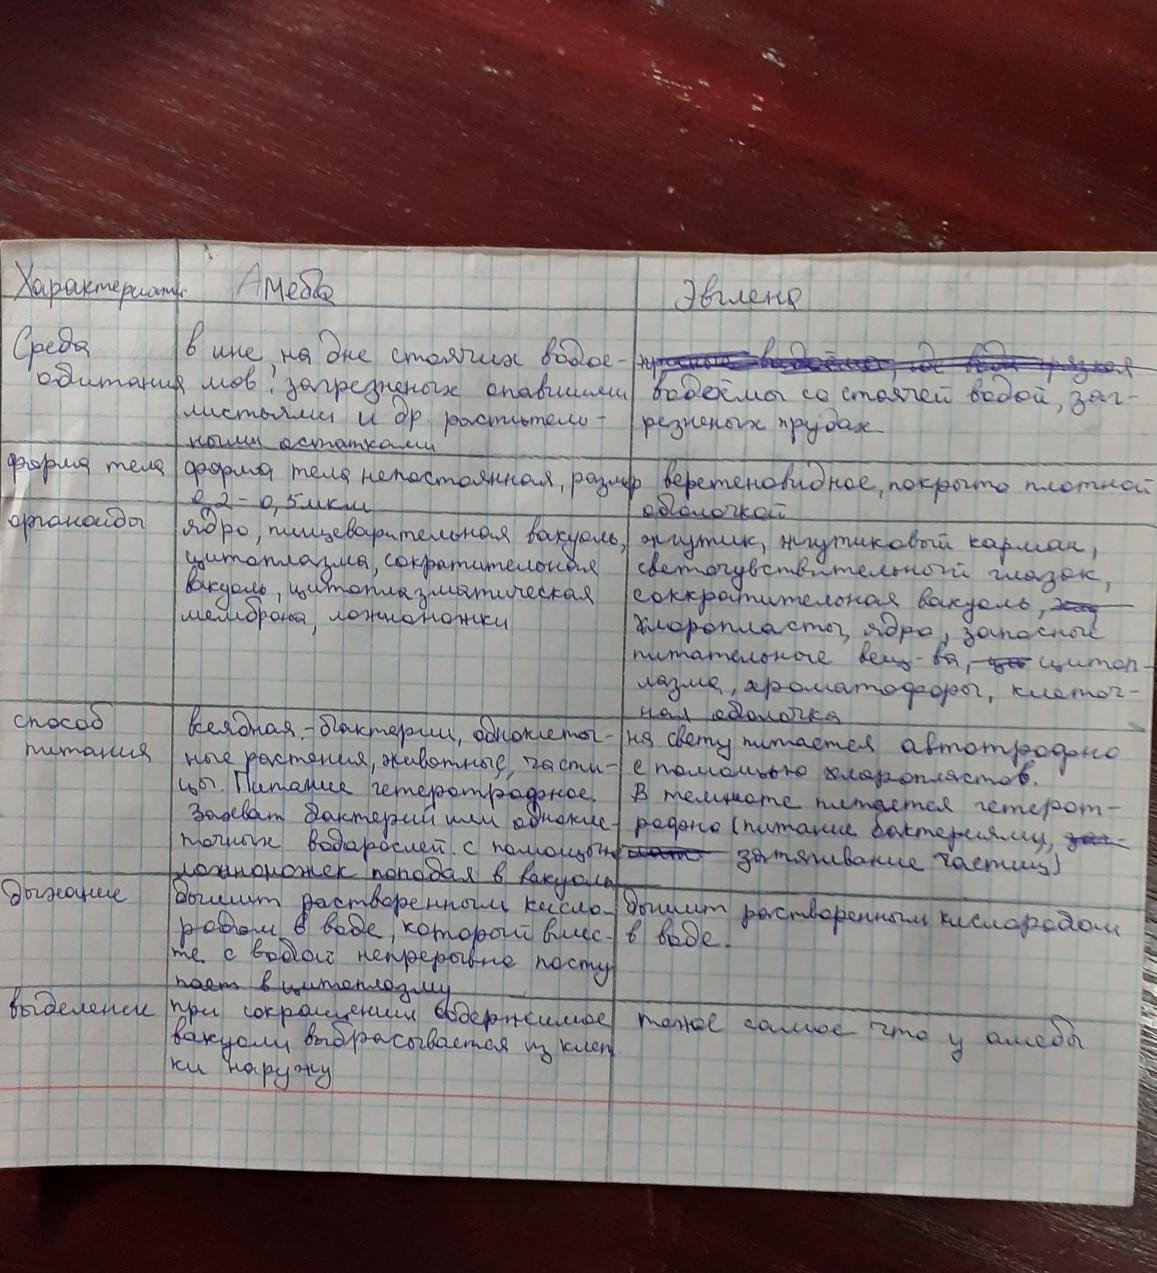 Характеристи Амеба Эвглена
Среда обитания
в иле, на дне стоячих водое-
мов, загрезненых опавшими
листьями и др. раститель-
ными остатками
водоёмы со стоячей водой, заг-
резненых прудах
форма тела
форма тела непостоянная, размер
0,2-0,5мкм
веретеновидное, покрыто плотной
оболочкой
органоиды
ядро, пищеварительная вакуоль,
цитоплазма, сократительная
вакуоль, цитоплазматическая
мембрана, ложноножки
жгутик, жгутиковый карман,
светочувствительный глазок,
соккратительная вакуоль,
хлоропласты, ядро, запасные
питательные вещ-ва, цитоп-
лазма, хроматофоры, клеточ-
ная оболочка
способ
питания
всеядная - бактерии, одноклеточ-
ные растения, животные, части-
цы. Питание гетеротрофное.
Захват бактерий или однокле-
точных водорослей с помощью
ложноножек попадая в вакуоль
на свету питается автотрофно
с помощью хлоропластов.
В темноте питается гетерот-
рофно (питание бактериями,
затягивание частиц)
дыхание
дышит растворенным кисло-
родом в воде, который вмес-
те с водой непрерывно посту
пает в цитоплазму
дышит растворенным кислородом
в воде.
выделение
при сокращении содержимое
вакуоли выбрасывается из клет
ки наружу
тоже самое что у амебы